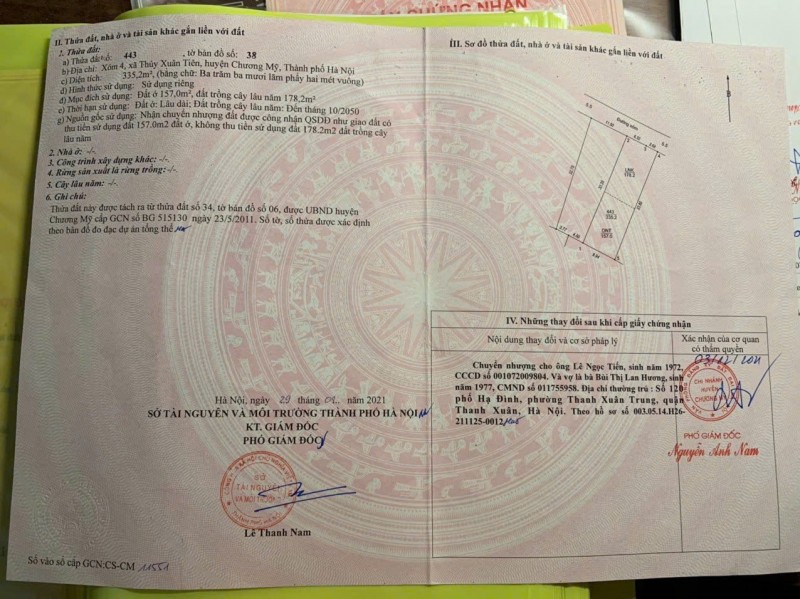 ỨNG NHẬN
II. Thửa đất, nhà ở và tài sản khác gắn liền với đất
1. Thửa đất:
a) Thửa đất số: 443 , tờ bản đồ số: 38
b) Địa chỉ: Xóm 4, xã Thủy Xuân Tiên, huyện Chương Mỹ, Thành phố Hà Nội
c) Diện tích: 335,2m², (bằng chữ: Ba trăm ba mươi lăm phẩy hai mét vuông)
d) Hình thức sử dụng: Sử dụng riêng
đ) Mục đích sử dụng: Đất ở 157,0m², đất trồng cây lâu năm 178,2m²
e) Thời hạn sử dụng: Đất ở: Lâu dài; Đất trồng cây lâu năm: Đến tháng 10/2050
g) Nguồn gốc sử dụng: Nhận chuyển nhượng đất được công nhận QSDĐ như giao đất có
thu tiền sử dụng đất 157.0m2 đất ở, không thu tiền sử dụng đất 178.2m2 đất trồng cây
lâu năm
2. Nhà ở: -/-.
3. Công trình xây dựng khác: -/-.
4. Rừng sản xuất là rừng trồng: -/-.
5. Cây lâu năm: -/-.
6. Ghi chú:
Thửa đất này được tách ra từ thửa đất số 34, tờ bản đồ số 06, được UBND huyện
Chương Mỹ cấp GCN số BG 515130 ngày 23/5/2011. Số tờ, số thửa được xác định
theo bản đồ đo đạc dự án tổng thể
Hà Nội, ngày 29 tháng 01 năm 2021
SỞ TÀI NGUYÊN VÀ MÔI TRƯỜNG THÀNH PHỐ HÀ NỘI
KT. GIÁM ĐỐC
PHÓ GIÁM ĐỐC
SỞ
TÀI NGUYÊN
VÀ MÔI TRƯỜNG
Lê Thanh Nam
Số vào sổ cấp GCN:CS-CM 11551
III. Sơ đồ thửa đất, nhà ở và tài sản khác gắn liền với đất
B
Đường xóm
443
335.2
IV. Những thay đổi sau khi cấp giấy chứng nhận
Nội dung thay đổi và cơ sở pháp lý
Xác nhận của cơ quan
có thẩm quyền
03/12/2021
Chuyển nhượng cho ông Lê Ngọc Tiến, sinh năm 1972,
CCCD số 001072009804. Và vợ là bà Bùi Thị Lan Hương, sinh
năm 1977, CMND số 011755958. Địa chỉ thường trú : Số 120
phố Hạ Đình, phường Thanh Xuân Trung, quận
Thanh Xuân, Hà Nội. Theo hồ sơ số 003.05.14.H26-
211125-0012
CHI NHÁNH
HUYỆN
CHƯƠNG MỸ
PHÓ GIÁM ĐỐC
Nguyễn Anh Nam